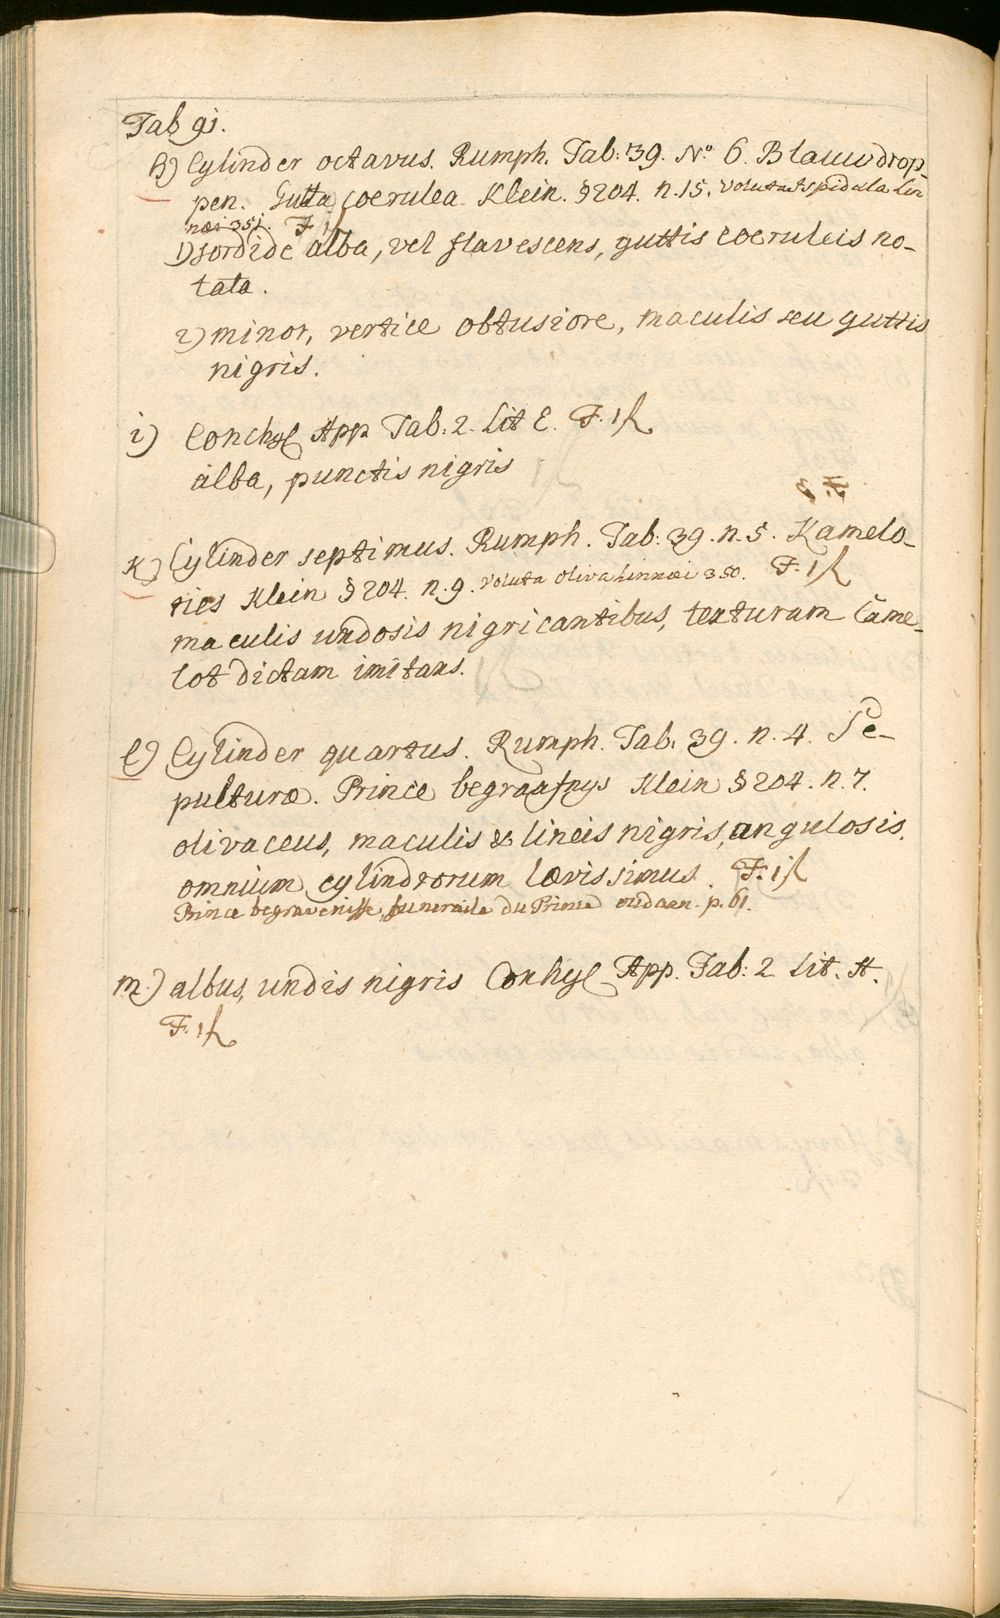 Tab 91.
h) Cylinder octavus. Rumph. Tab: 39. No. 6. Blauwdrop-
pen. Gutta coerulea Klein. §204. n. 15. Voluta ispidula Lin
næi 351. F. 1
1) sordide alba, vel flavescens, guttis coeruleis no-
tata.
2) minor, vertice obtusiore, maculis seu guttis
nigris.
i) Conchyl App Tab: 2. Lit E. F. 1
alba, punctis nigris
k) Cylinder septimus. Rumph. Tab: 39. n. 5. Kamelo-
ties Klein §204. n. 9. Voluta oliva Linnæi 350. F. 1
maculis undosis nigricantibus, texturam Came-
lot dictam imitans.
l) Cylinder quartus. Rumph. Tab. 39. n. 4. Se-
pulturæ. Prince begraafnys Klein §204. n. 7.
olivaceus, maculis & lineis nigris, angulosis.
omnium cylindrorum lævissimus. F. 1
Prince begravenisse, funeraile du Prince oudaen. p. 61.
m.) albus, undis nigris Conhyl App. Tab: 2 Lit. A.
F. 1